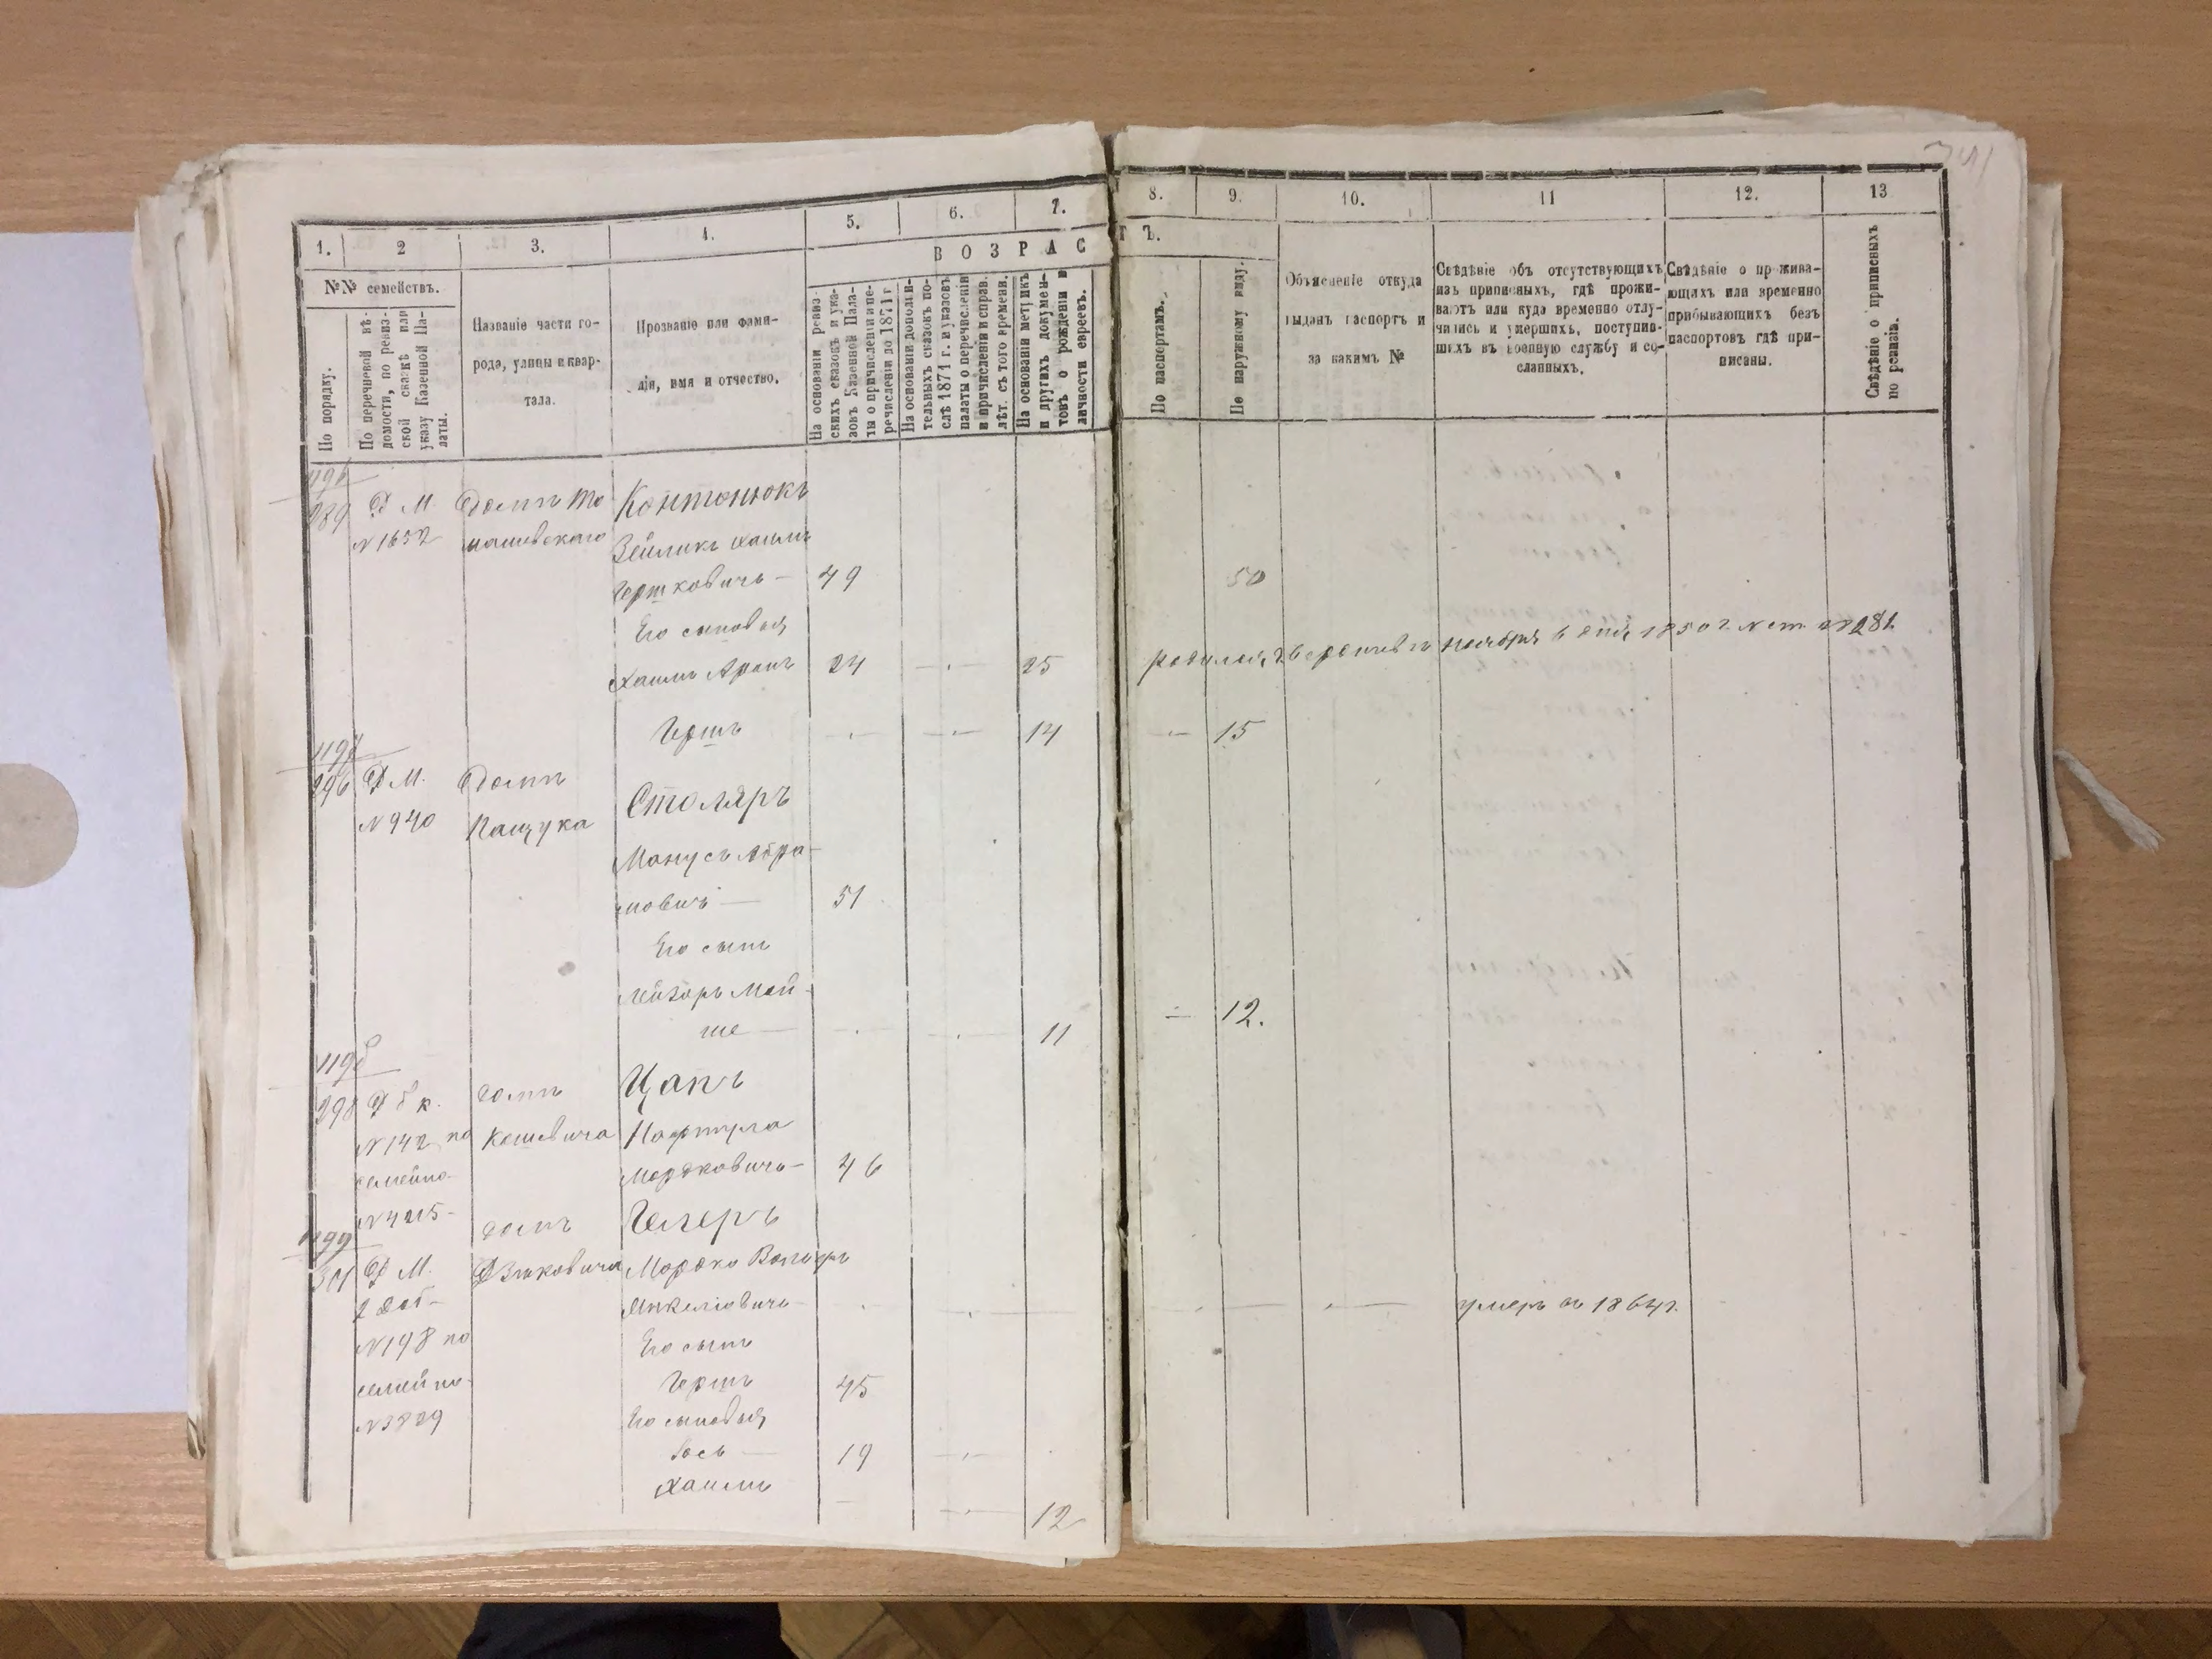 1. 2 3. 4. 5. 6. 7. 8. 9. 10. 11 12. 13
ВОЗРАСТЪ.
№№ семействъ.
По порядку.
По перечневой вѣ-
домости, по ревиз-
ской сказкѣ или
указу Казенной Па-
латы.
Названіе части го-
рода, улицы и квар-
тала.
Прозваніе или фами-
лія, имя и отчество.
На основаніи ревиз-
скихъ сказокъ и ука-
зовъ Казенной Пала-
ты о причисленіи и пе-
речисленіи до 1871 г
На основаніи дополни-
тельныхъ сказокъ по-
слѣ 1871 г. и указовъ
палаты о перечисленіи
и причисленіи и справ.
лѣт. съ того времени.
На основаніи метрикъ
и другихъ докумен-
товъ о рожденіи и
личности евреевъ.
По паспортамъ.
По наружному виду.
Объясненіе откуда
выданъ паспортъ и
за какимъ №
Свѣдѣніе объ отсутствующихъ
изъ приписныхъ, гдѣ прожи-
ваютъ или куда временно отлу-
чились и умершихъ, поступив-
шихъ въ военную службу и со-
сланныхъ.
Свѣдѣніе о прожива-
ющихъ или временно
прибывающихъ безъ
паспортовъ гдѣ при-
писаны.
Свѣдѣніе о приписныхъ
по ревизіи.
1196
289 Д М. Домъ То Контонюкъ
№1652 машевскаго Зейликъ Хаимъ
Гершковичь — 49 50
Его сыновья
Хаимъ Аронъ 24 — 25 родился въ ноября 6 дня 1850 г.
Гершъ — — 14 — 15
1197
296 Д М. Домъ Столяръ
№940 Пащука
Манусъ Абра-
мовичь — 51
Его сынъ
Лейзоръ Мой-
ше — — — 11 — 12.
1198
298 Д б к. домъ Цапъ
№142 по Кашевича Нафтула
семейно- Мордковичь — 46
№4215 —
1199 домъ Гелеръ
301 Д М. Мордко Вольфъ
2 доб- Янкелiовичь — — — — умеръ въ 1864 г.
№198 по Его сынъ
семейно- Гершъ 45
№3829 Его сыновья
Іось — 19 —
Хаимъ — — 12